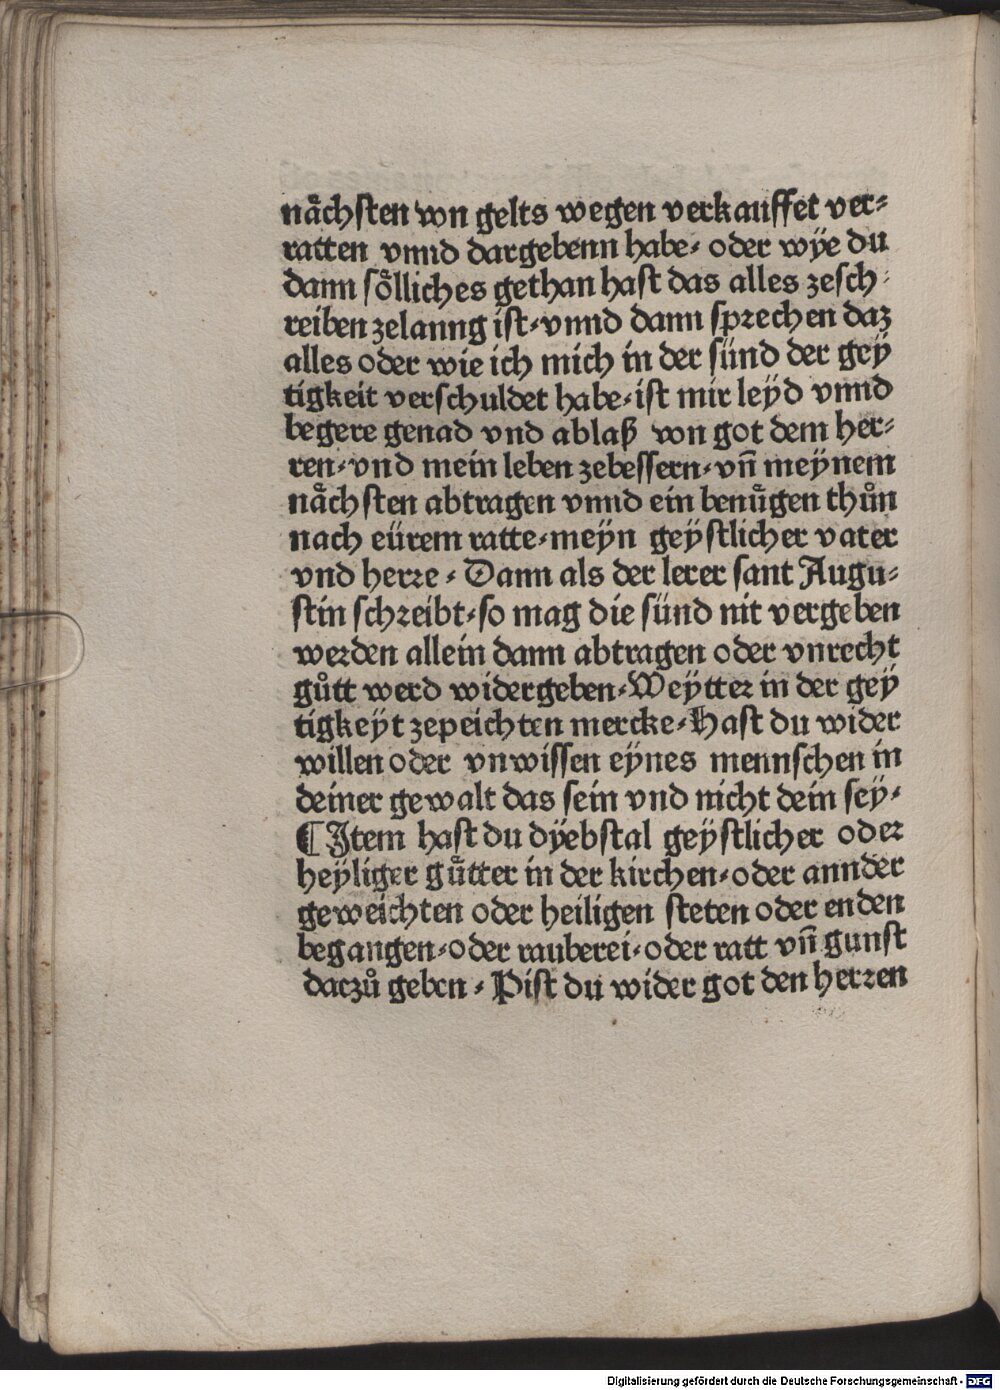 nåchſten von gelts wegen verkauffet ver⸗
ratten vnnd dargebenn habe⸗ oder wÿe du
dann ſoͤlliches gethan haſt das alles zeſch⸗
reiben zelanng iſt⸗vnnd dann ſpꝛechen daz
alles oder wie ich mich in der ſünd der geÿ
tigkeit verſchuldet habe⸗iſt mir leÿd vnnd
begere genad vnd ablaß von got dem her⸗
ren⸗vnd mein leben zebeſſern⸗vn̄ meÿnem
naͤchſten abtragen vnnd ein benuͤgen thůn
nach eürem ratte⸗meÿn geÿſtlicher vater
vnd herꝛe⸗ Dann als der lerer ſant Augu⸗
ſtin ſchꝛeibt⸗ſo mag die ſünd nit vergeben
weꝛden allein dann abtragen oder vnrecht
gůtt werd widergeben⸗Weÿtteꝛ in der geÿ
tigkeÿt zepeichten mercke⸗Haſt du wider
willen oder vnwiſſen eÿnes mennſchen in
deiner gewalt das ſein vnd nicht dein ſeÿ⸗
¶ Item haſt du dÿebſtal geÿſtlicher odeꝛ
heÿliger guͤtter in der kirchen⸗oder annder
geweichten oder heiligen ſteten oder enden
begangen⸗oder rauberei⸗oder ratt vn̄ gunſt
darzů geben⸗ Piſt du wider got den herꝛen
Digitalisierung gefördert durch die Deutsche Forschungsgemeinschaft - DFG